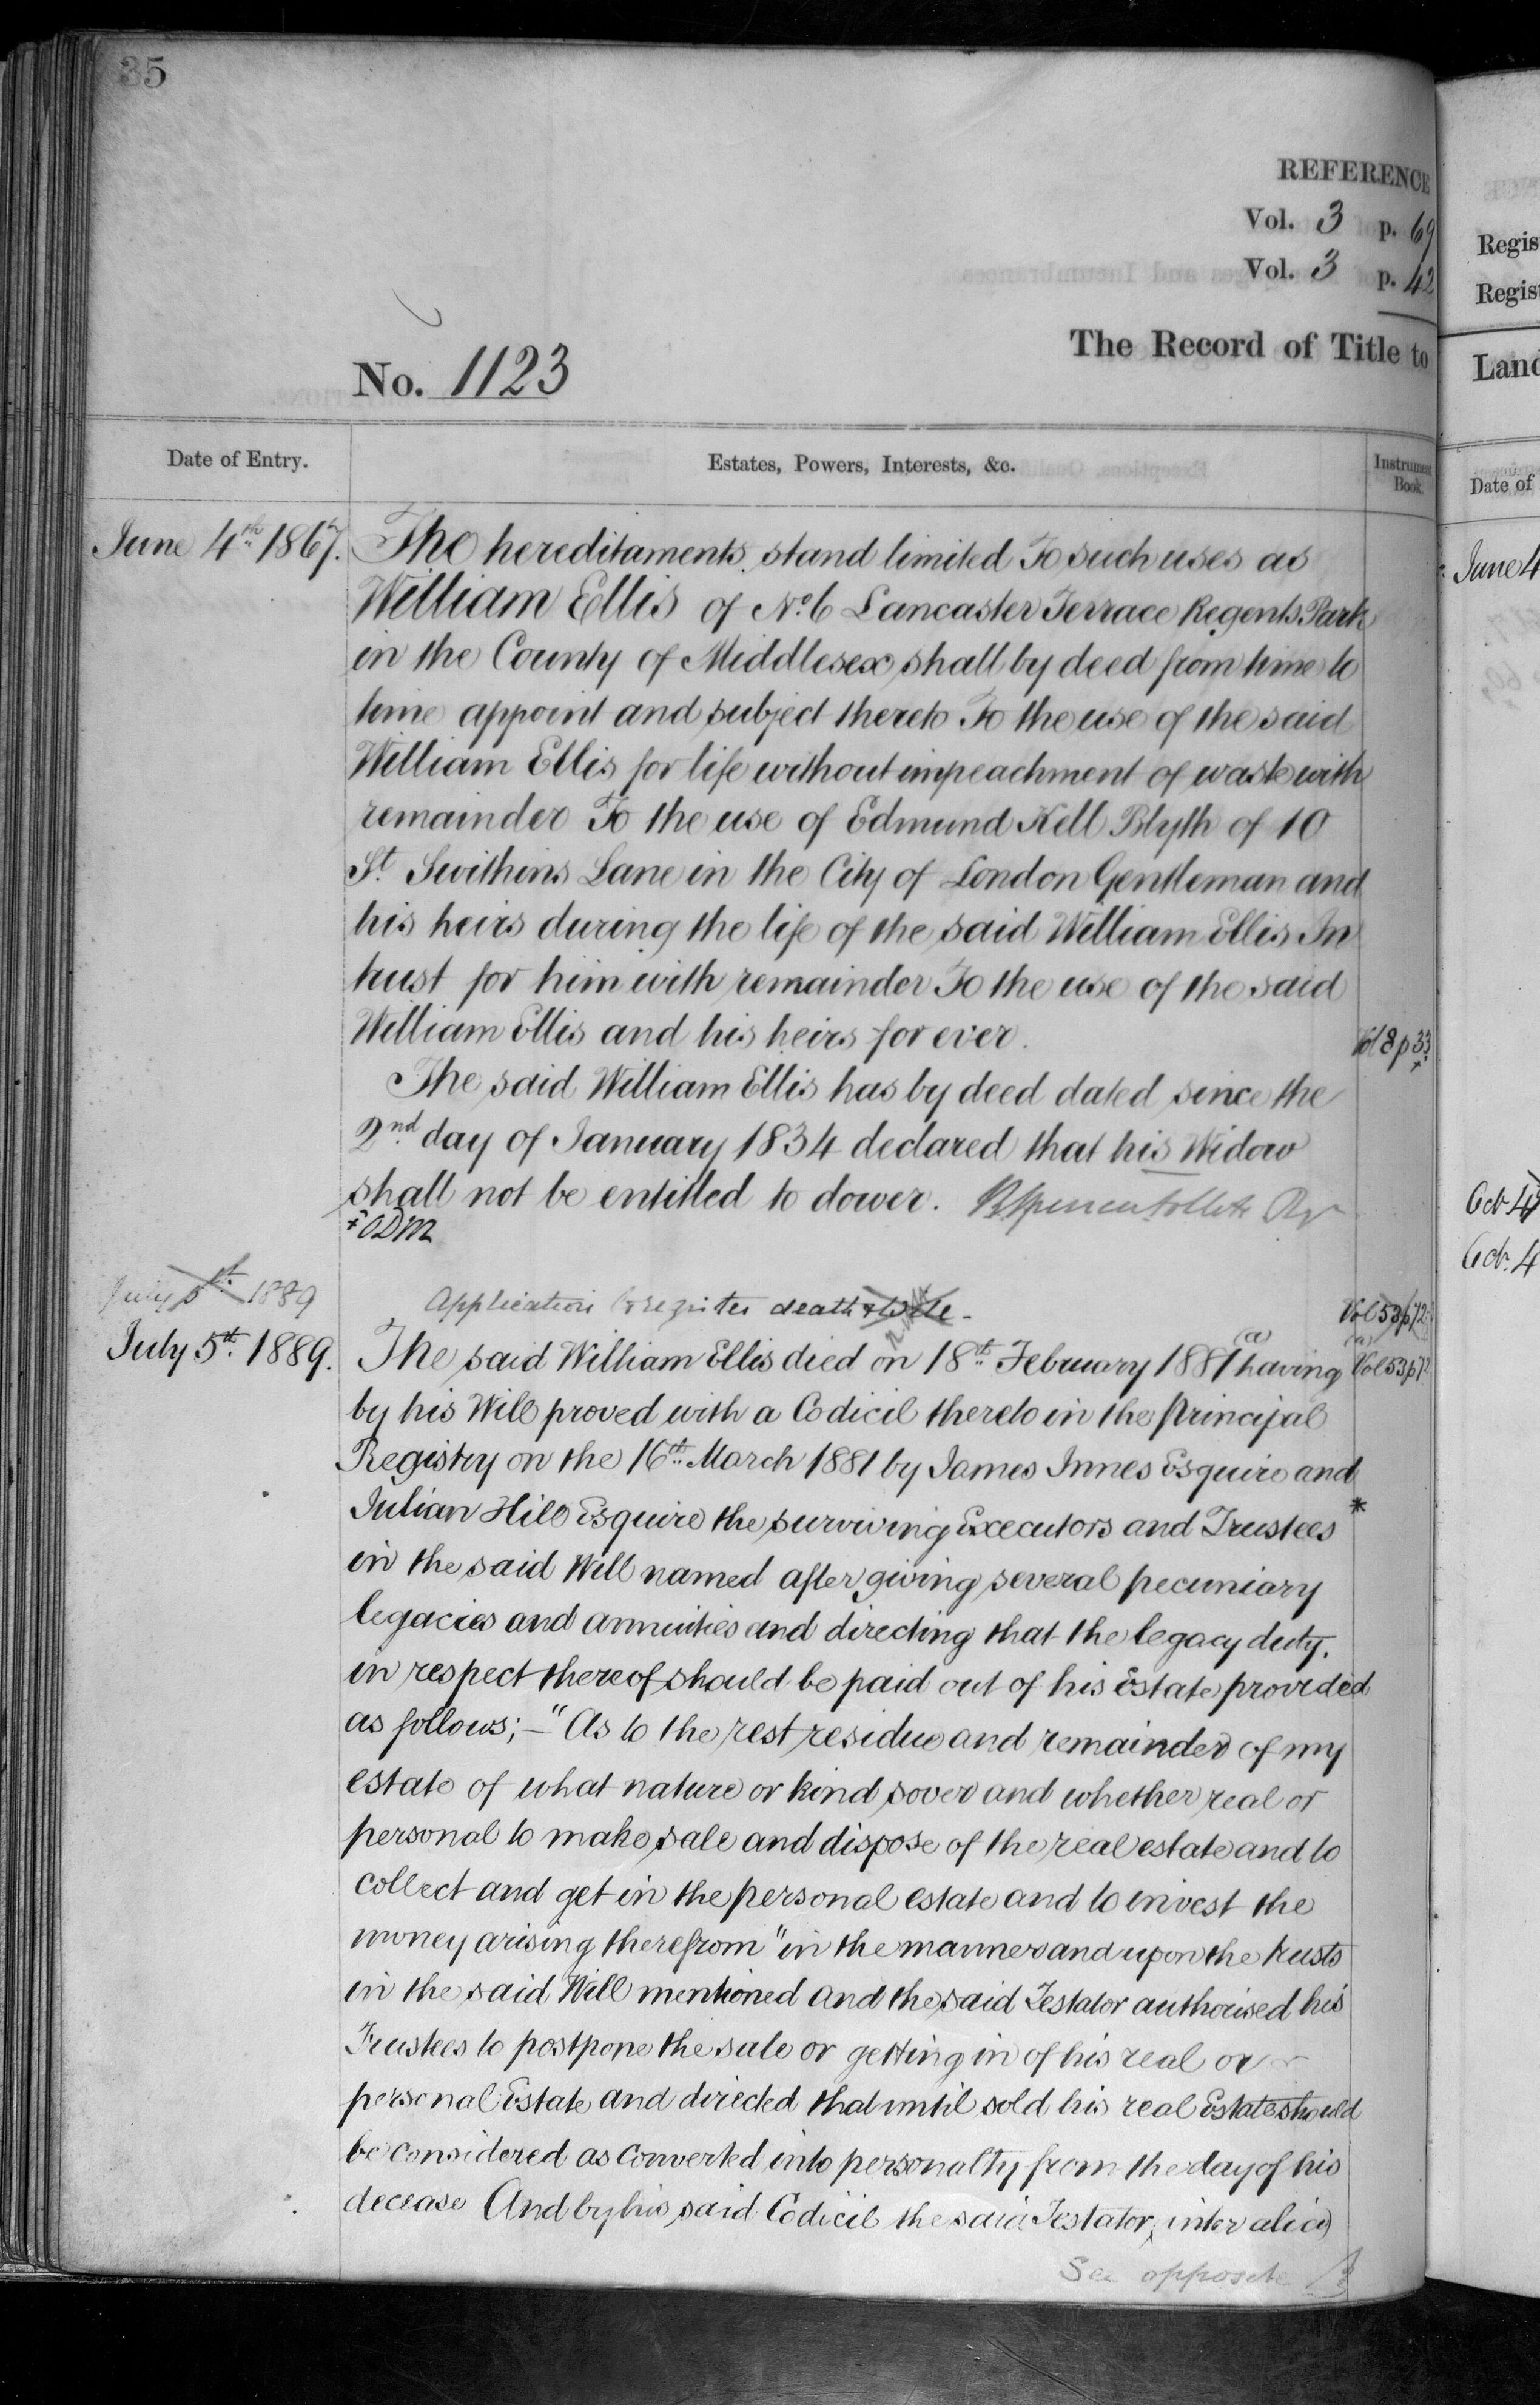 35
REFERENCE
Vol. 3 p. 69
Vol. 3 p. 42
No. 1123
The Record of Title to
Date of Entry.
Estates, Powers, Interests, &c.
Instrument
Book.
June 4th 1867.
The hereditaments stand limited To such uses as
William Ellis of No. 6 Lancaster Terrace Regents Park
in the County of Middlesex shall by deed from time to
time appoint and subject thereto To the use of the said
William Ellis for life without impeachment of waste with
remainder To the use of Edmund Kell Blyth of 10
St. Swithins Lane in the City of London Gentleman and
his heirs during the life of the said William Ellis In
trust for him with remainder To the use of the said
William Ellis and his heirs for ever.
Vol 8 p 33
The said William Ellis has by deed dated since the
2nd day of January 1834 declared that his Widow
shall not be entitled to dower.
July 5th 1889
Application to register death & Will
Vol 53 p 72
July 5th 1889.
The said William Ellis died on 18th February 1881 (a) having
(a) Vol 53 p 72
by his Will proved with a Codicil thereto in the Principal
Registry on the 16th March 1881 by James Innes Esquire and
Julian Hill Esquire the surviving Executors and Trustees *
in the said Will named after giving several pecuniary
legacies and annuities and directing that the legacy duty
in respect thereof should be paid out of his Estate provided
as follows; — "As to the rest residue and remainder of my
estate of what nature or kind sover and whether real or
personal to make sale and dispose of the real estate and to
collect and get in the personal estate and to invest the
money arising therefrom" in the manner and upon the trusts
in the said Will mentioned and the said Testator authorised his
Trustees to postpone the sale or getting in of his real or
personal Estate and directed that until sold his real Estate should
be considered as converted into personalty from the day of his
decease And by his said Codicil the said Testator, inter alia)
See opposite
Regis
Regis
Land
Date of
June 4
Oct 4
Oct. 4